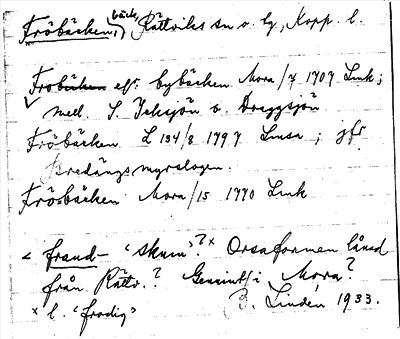 Fröbäcken, bäck, Rättviks sn o. lg, Kopp. l.
Fröbäcken efr. bybäcken Mora/7 1707 Lmk;
mell. S. Jeksjön o. Draggsjön
Fröbäcken L 134/8 1797 Lmsa; jfr
Bredängsmyrslogen.
Frösbäcken Mora/15 1770 Lmk
< fraud- "skum"?ˣ Orsaformen lånad
från Rättv.? Genuint/i Mora?
x l. "frodig" B. Lindén 1933.